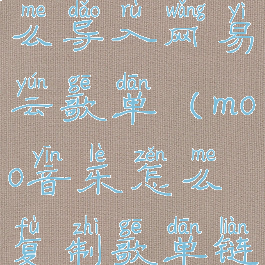 me dǎo rù wǎng yì
么导入网易
yún gē dān
云歌单（mo
yīn lè zěn me
o音乐怎么
fù zhì gē dān liàn
复制歌单链